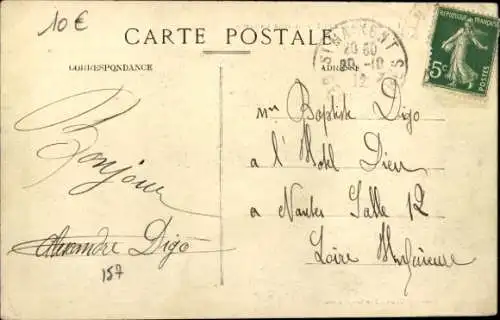 10€
CARTE POSTALE
CORRESPONDANCE
ADRESSE
20 30
20 -10
12
REPUBLIQUE FRANÇAISE
5c
POSTES
Bonjour
Alexandre Digo
157
Mr Baptiste Digo
a l'Hotel Dieu
a Nantes Salle 12
Loire Inférieure